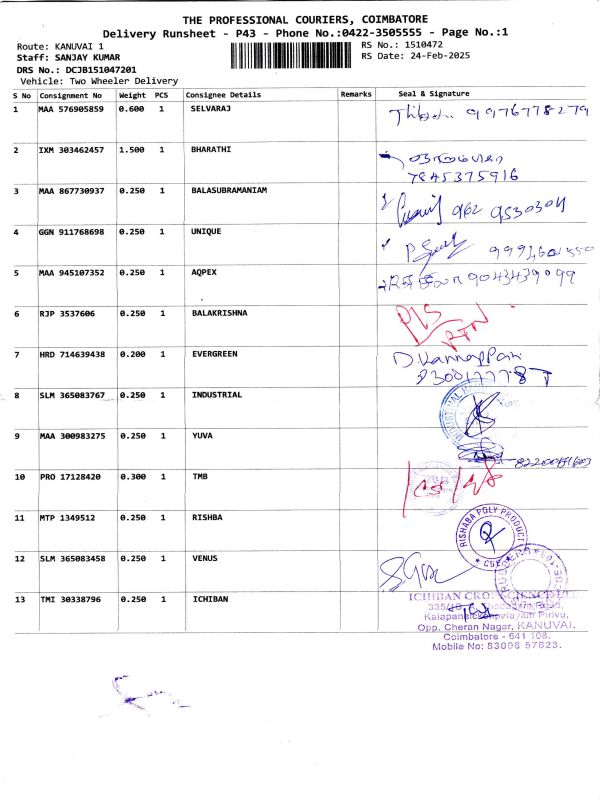 THE PROFESSIONAL COURIERS, COIMBATORE
Delivery Runsheet - P43 - Phone No.:0422-3505555 - Page No.:1
Route: KANUVAI 1
RS No.: 1510472
Staff: SANJAY KUMAR
RS Date: 24-Feb-2025
DRS No.: DCJB151047201
Vehicle: Two Wheeler Delivery
S No Consignment No Weight PCS Consignee Details Remarks Seal & Signature
1 MAA 576905859 0.600 1 SELVARAJ 9976778279
2 IXM 303462457 1.500 1 BHARATHI
7845375916
3 MAA 867730937 0.250 1 BALASUBRAMANIAM 962 9530304
4 GGN 911768698 0.250 1 UNIQUE
5 MAA 945107352 0.250 1 AQPEX 9043439099
6 RJP 3537606 0.250 1 BALAKRISHNA PLS
RTN
7 HRD 714639438 0.200 1 EVERGREEN D.Kannappan
8 SLM 365083767 0.250 1 INDUSTRIAL
9 MAA 300983275 0.250 1 YUVA
10 PRO 17128420 0.300 1 TMB
11 MTP 1349512 0.250 1 RISHBA RISHABA POLY PRODUCT
CBE
12 SLM 365083458 0.250 1 VENUS
13 TMI 30338796 0.250 1 ICHIBAN ICHIBAN CROP SCIENCE LTD
Opp. Cheran Nagar, KANUVAI.
Coimbatore - 641 108.
Mobile No: 83006 57623.